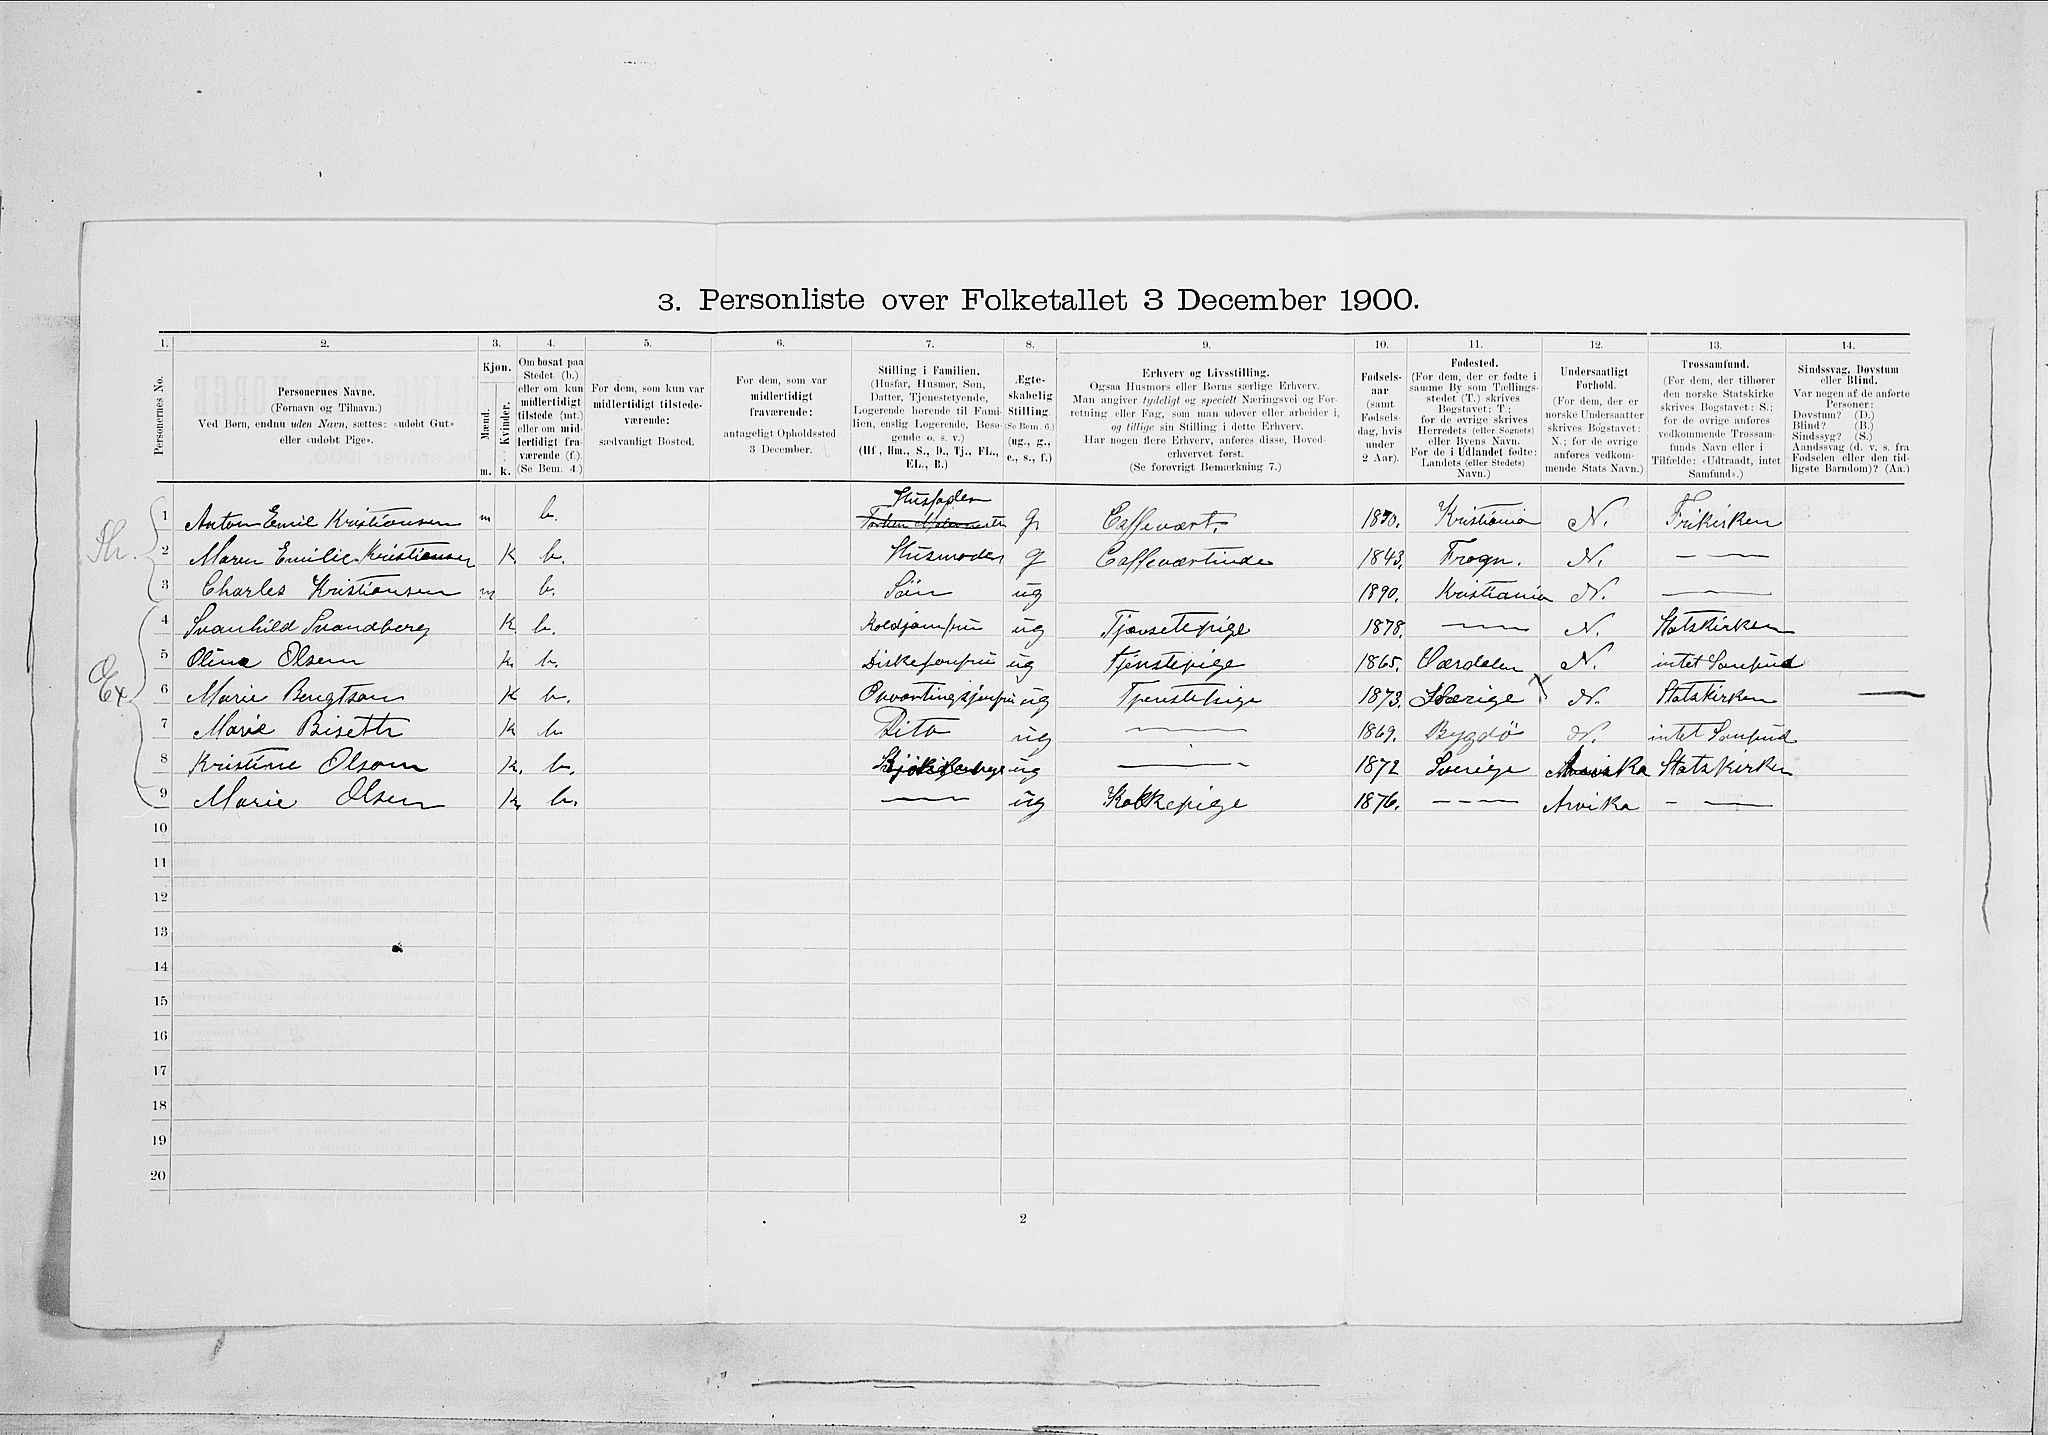 3. Personliste over Folketallet 3 December 1900.
1. 2. 3. 4. 5. 6. 7. 8. 9. 10. 11. 12. 13. 14.
Personernes No.
Personernes Navne.
(Fornavn og Tilnavn.)
Ved Børn, endnu uden Navn, sættes: «udøbt Gut»
eller «udøbt Pige».
Kjøn.
Mænd. Kvinder.
m. k.
Om bosat paa
Stedet (b.)
eller om kun
midlertidigt
tilstede (mt.)
eller om mid-
lertidigt fra-
værende (f.).
(Se Bem. 4.)
For dem, som kun var
midlertidigt tilstede-
værende:
sædvanligt Bosted.
For dem, som var
midlertidigt
fraværende:
antageligt Opholdssted
3 December.
Stilling i Familien.
(Husfar, Husmor, Søn,
Datter, Tjenestetyende,
Logerende hørende til Fami-
lien, enslig Logerende, Besø-
gende o. s. v.)
(Hf., Hm., S., D., Tj., FL.,
EL., B.)
Ægte-
skabelig
Stilling.
(Se Bem. 6.)
(ug., g.,
e., s., f.)
Erhverv og Livsstilling.
Ogsaa Husmors eller Børns særlige Erhverv.
Man angiver tydeligt og specielt Næringsvei og For-
retning eller Fag, som man udøver eller arbeider i,
og tillige sin Stilling i dette Erhverv.
Har nogen flere Erhverv, anføres disse, Hoved-
erhvervet først.
(Se forøvrigt Bemærkning 7.)
Fødsels-
aar
(samt
Fødsels-
dag, hvis
under
2 Aar).
Fødested.
(For dem, der er fødte i
samme By som Tællings-
stedet (T.) skrives
Bogstavet: T;
for de øvrige skrives
Herredets (eller Sognets)
eller Byens Navn.
For de i Udlandet fødte:
Landets (eller Stedets)
Navn.)
Undersaatligt
Forhold.
(For dem, der er
norske Undersaatter
skrives Bogstavet:
N.; for de øvrige
anføres vedkom-
mende Stats Navn.)
Trossamfund.
(For dem, der tilhører
den norske Statskirke
skrives Bogstavet: S.;
for de øvrige anføres
vedkommende Trossam-
funds Navn eller i
Tilfælde: «Udtraadt, intet
Samfund».)
Sindssvag, Døvstum
eller Blind.
Var nogen af de anførte
Personer:
Døvstum? (D.)
Blind? (B.)
Sindssyg? (S.)
Aandssvag (d. v. s. fra
Fødselen eller den tid-
ligste Barndom)? (Aa.)
Husfader
1 Anton Emil Kristiansen m b. g Caffevært. Kristiania N. Frikirken
2 Maren Emilie Kristiansen K b. Husmoder g Caffeværtinde 1843. Frogn. N. — —
3 Charles Kristiansen m b. Søn ug 1890. Kristiania N. — —
4 Svanhild Svandberg K b. Koldjomfru ug Tjenestepige 1878. — — N. Statskirken
5 Oline Olsen K. b. Diskejomfru ug Tjenstepige 1865. Værdalen N. intet Samfund
Ex.
6 Marie Bengtson K b. Opvartingsjomfru ug Tjenstepige 1873. Sværige N. Statskirken —
7 Marie Biseth K b Dito ug — 1869. Bygdø N. intet Samfund
8 Kristine Olsom K. b. ug — 1872 Sverige Arvika Statskirken
9 Marie Olsen K. b. — ug Kokkepige 1876. — — — Arvika — —
10
11
12
13
14
15
16
17
18
19
20
2